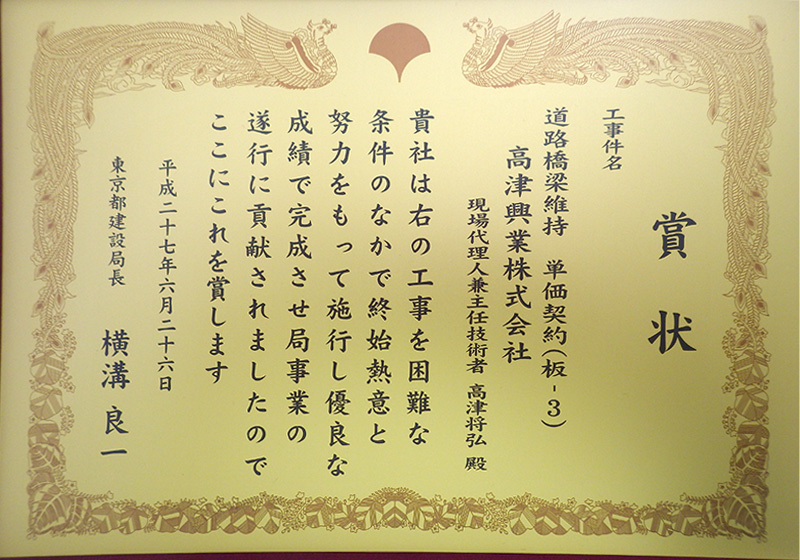 賞状
工事件名
道路橋梁維持　単価契約(板-3)
高津興業株式会社
現場代理人兼主任技術者　高津将弘　殿
貴社は右の工事を困難な
条件のなかで終始熱意と
努力をもって施行し優良な
成績で完成させ局事業の
遂行に貢献されましたので
ここにこれを賞します
平成二十七年六月二十六日
東京都建設局長　横溝良一